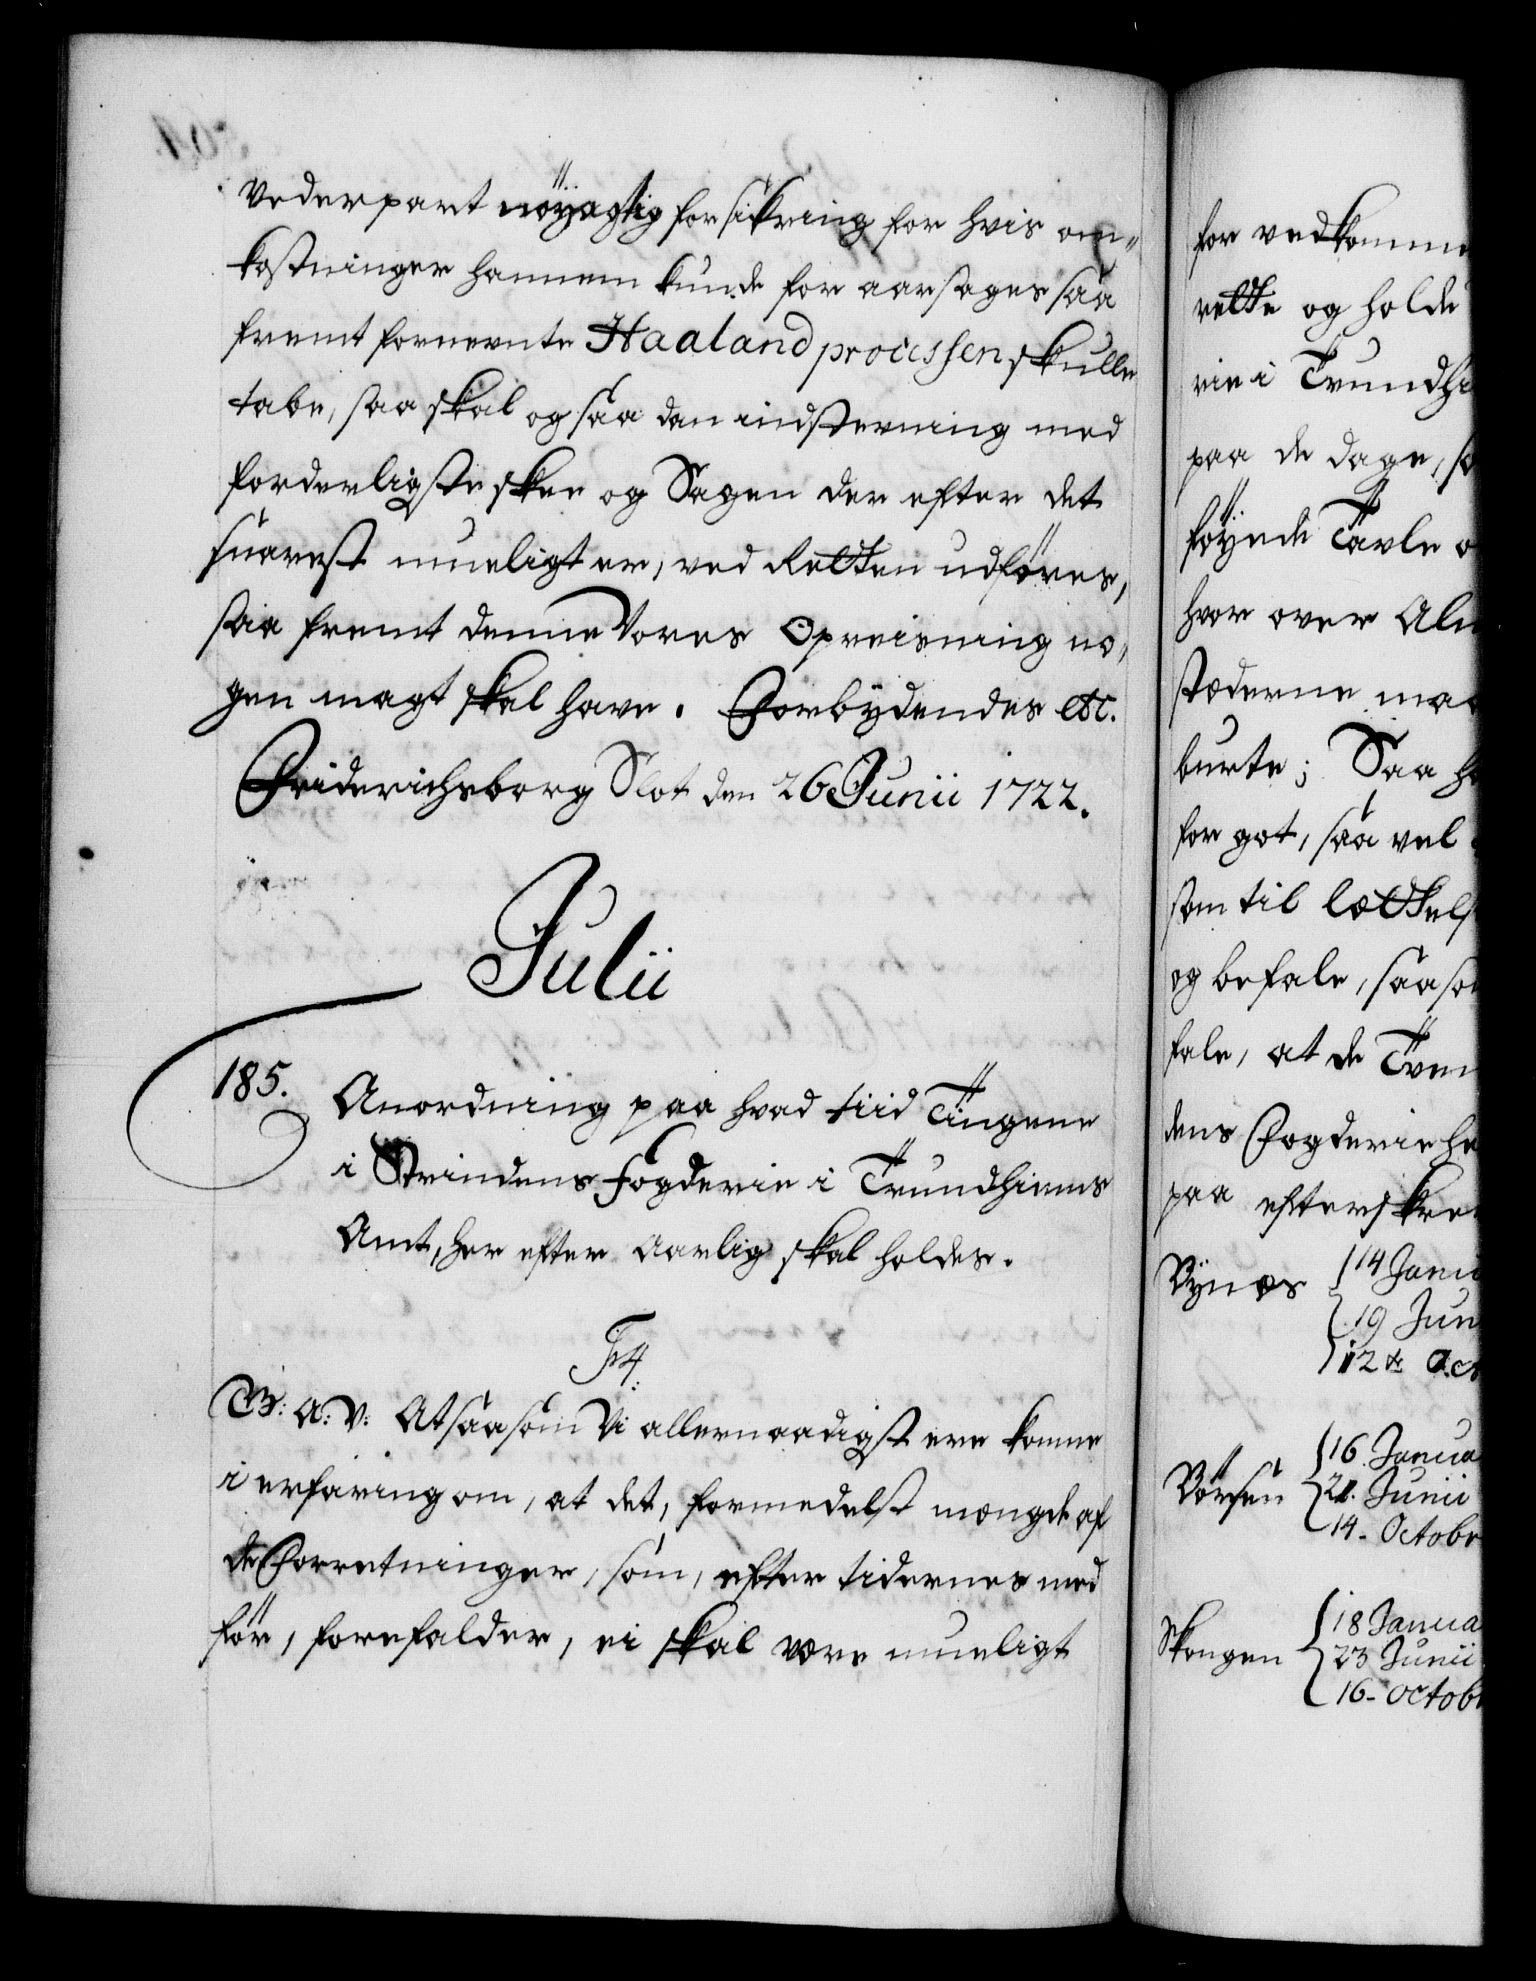 vederpart nöyagtig forsikring for hvis om„
kostninger hannem kunde for aarsages saa
fremt fornevnte Haaland processen skulle
tabe, saa skal og saa den indstevning med
forderligste skee og Sagen der efter det
snarest mueligt er, ved Retten udføres,
saa fremt denne Vores Opreisning no„
gen magt skal have. Forbydendes etc.
Friderichsborg Slot den 26 Junii 1722.
Julii
185. Anordning paa hvad tiid Tingene
i Strindens fogderie i Trundhiems
Amt, her efter Aarlig skal holdes.
F4.
G: A: V: At saasom Vi allernaadigst ere komne
i erfaring om, at det, formedelst mengde af
de Forretninger, som, efter tidernes med
før, forefalder, ei skal være mueligt
for vedkomme
rette og holde
rie i Trundhi
paa de dage, so
föyede Tavle o
hvor over Alm
stæderne maa
burte; Saa ha
for got, saa vel
som til lættels
og befale, saaso
fale, at de Tven
dens Fogderie he
paa efterskre
Bynæs { 14 Janu
19 Jun
12 dr Oct
Börsen { 16 Janua
21. Junii
14. Octobr
Skougen { 18 Janua
23 Junii
16. Octobr